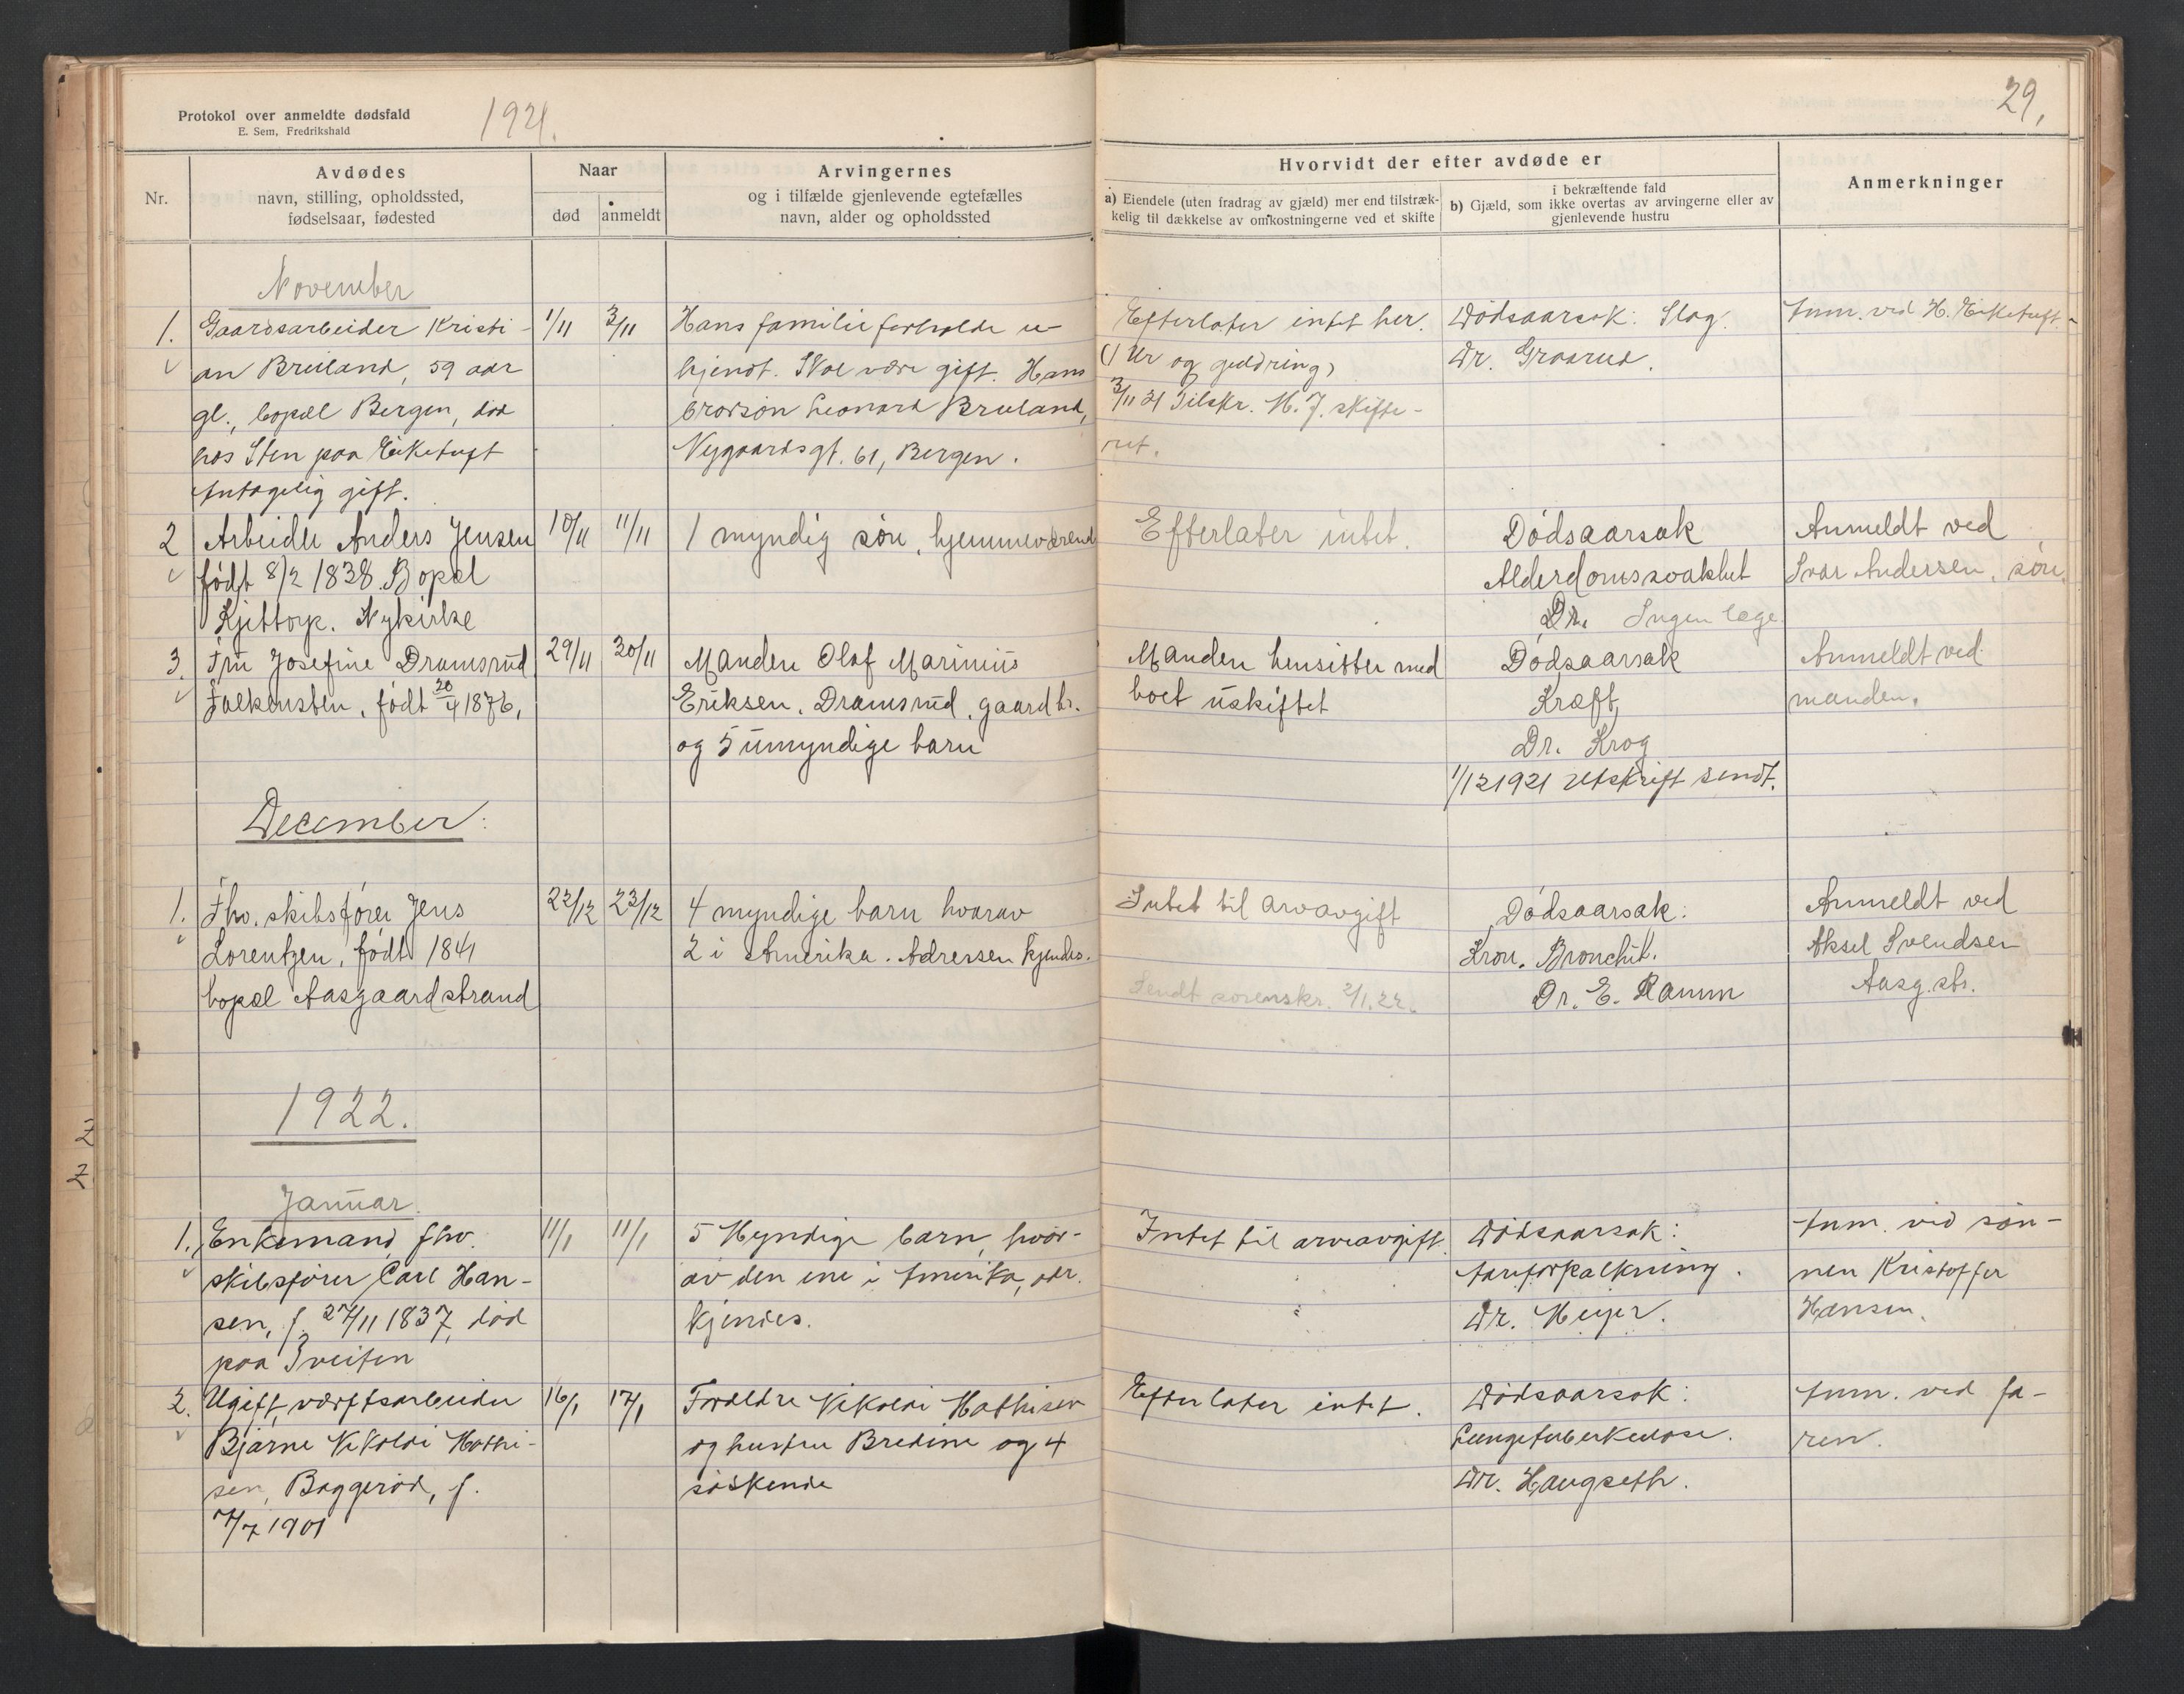 Protokol over anmeldte dødsfald
E. Sem, Fredrikshald
1921.
29,
Nr.
Avdødes
navn, stilling, opholdssted,
fødselsaar, fødested
Naar
død
anmeldt
Arvingernes
og i tilfælde gjenlevende egtefælles
navn, alder og opholdssted
Hvorvidt der efter avdøde er
a) Eiendele (uten fradrag av gjæld) mer end tilstræk-
kelig til dækkelse av omkostningerne ved et skifte
i bekræftende fald
b) Gjæld, som ikke overtas av arvingerne eller av
gjenlevende hustru
Anmerkninger
November
1.
Gaardsarbeider Kristi-
an Breiland, 59 aar
gl., bopæl Bergen, død
hos Sten paa Eiketuft
Antagelig gift.
1/11
3/11
Hans familieforholde u-
kjendt. Skal være gift. Hans
brorsøn Leonard Breiland,
Nygaardsgt. 61, Bergen.
Efterlater intet her.
(1 Ur og guldring)
3/11 21 Tilskr. M. J. skifte-
ret.
Dødsaarsak: Slag.
Dr. Graarud.
Anm. ved H. Eiketuft.
2
Arbeider Anders Jensen
født 8/2 1838. Bopæl
Kjøttorp. Nykirke
10/11
11/11
1 myndig søn, hjemmeværend
Efterlater intet.
Dødsaarsak
Alderdomssvakhet
Dr. Ingen læge
Anmeldt ved
Ivar Andersen, søn.
3.
Fru Josefine Dramsrud
Falkensten, født 20/4 1876,
29/11
30/11
Manden Olaf Marinius
Eriksen, Dramsrud, gaardbr.
og 5 umyndige barn
Manden hensitter med
boet uskiftet
Dødsaarsak
Kræft,
Dr. Krog
1/12 1921 utskrift sendt.
Anmeldt ved
manden.
December:
1.
Fhv. skibsfører Jens
Lorentzen, født 1841
bopæl Aasgaardstrand
22/12
23/12
4 myndige barn hvorav
2 i Amerika. Adressen kjendes.
Intet til arvavgift
Sendt sorenskr. 2/1.22.
Dødsaarsak:
Kron. Bronchit.
Dr. E. Ramm
Anmeldt ved
Aksel Svendsen
Aasg.str.
1922.
Januar.
1.
Enkemand, fhv.
skibsfører Carl Han-
sen, f. 27/11 1837, død
paa Tveiten
11/1
11/1
5 Myndige barn, hvor-
av den ene i Amerika, adr.
kjendes.
Intet til arveavgift.
Dødsaarsak:
Aareforkalkning.
Dr. Meyer.
Anm. ved søn-
nen Kristoffer
Hansen.
2.
Ugift, værftsarbeider
Bjarne Nikolai Mathi-
sen, Baggerød, f.
7/7 1901
16/1
17/1
Forældre Nikolai Mathisen
og hustru Bredine og 4
søskende
Efterlater intet.
Dødsaarsak:
Lungetuberkulose.
Dr. Haugseth.
Anm. ved fa-
ren.
2
2